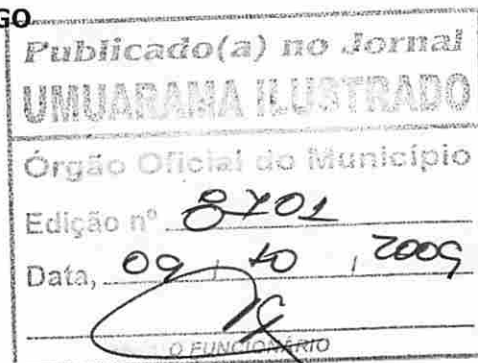 GO
Publicado(a) no Jornal
UMUARAMA ILUSTRADO
Órgão Oficial do Município
Edição nº 8701
Data, 09 / 10 / 2009
O FUNCIONÁRIO